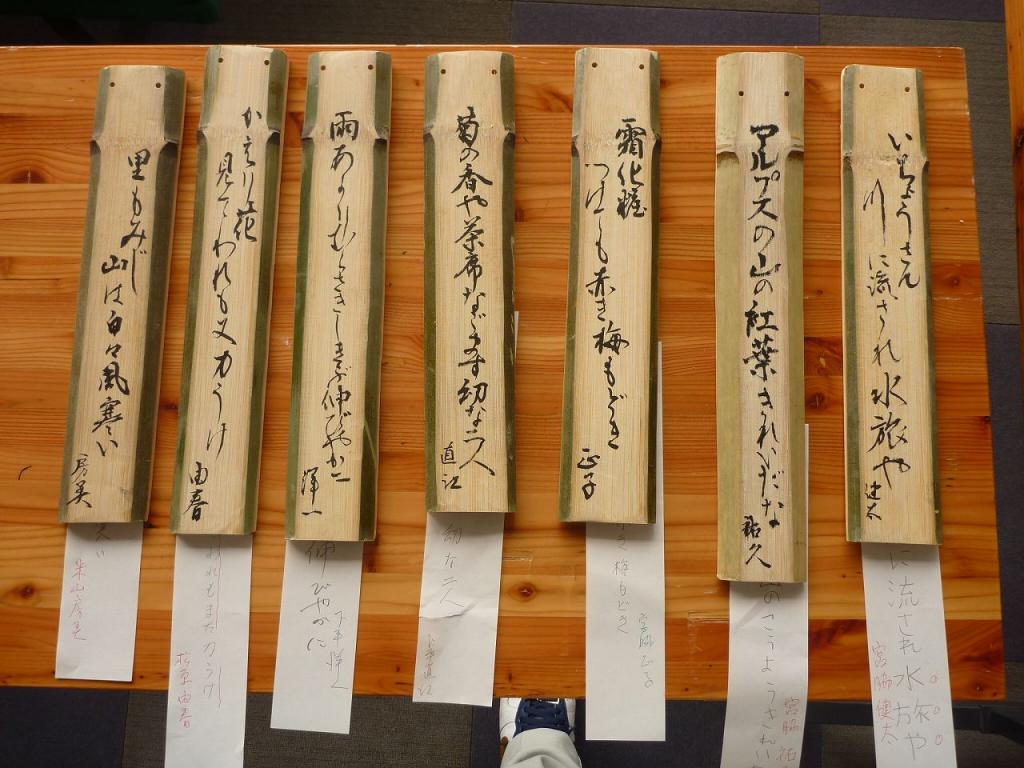 いちょうさん
川に流され水旅や
アルプスの山の紅葉きれいだな
祐久
霜化粧
つけても赤き梅もどき
正子
菊の香や茶席なごます幼な二人
直江
雨あがりむらさきしきぶ伸びやかに
かえり花
見てわれも又力うけ
由春
里もみじ
山は白々風寒い
房美
に流され水旅や
宮脇健太
山のこうようきれい
宮脇祐
き梅もどき
宮脇正子
幼な二人
下平直江
伸びやかに
われもまた力うけ
由春
米山房美